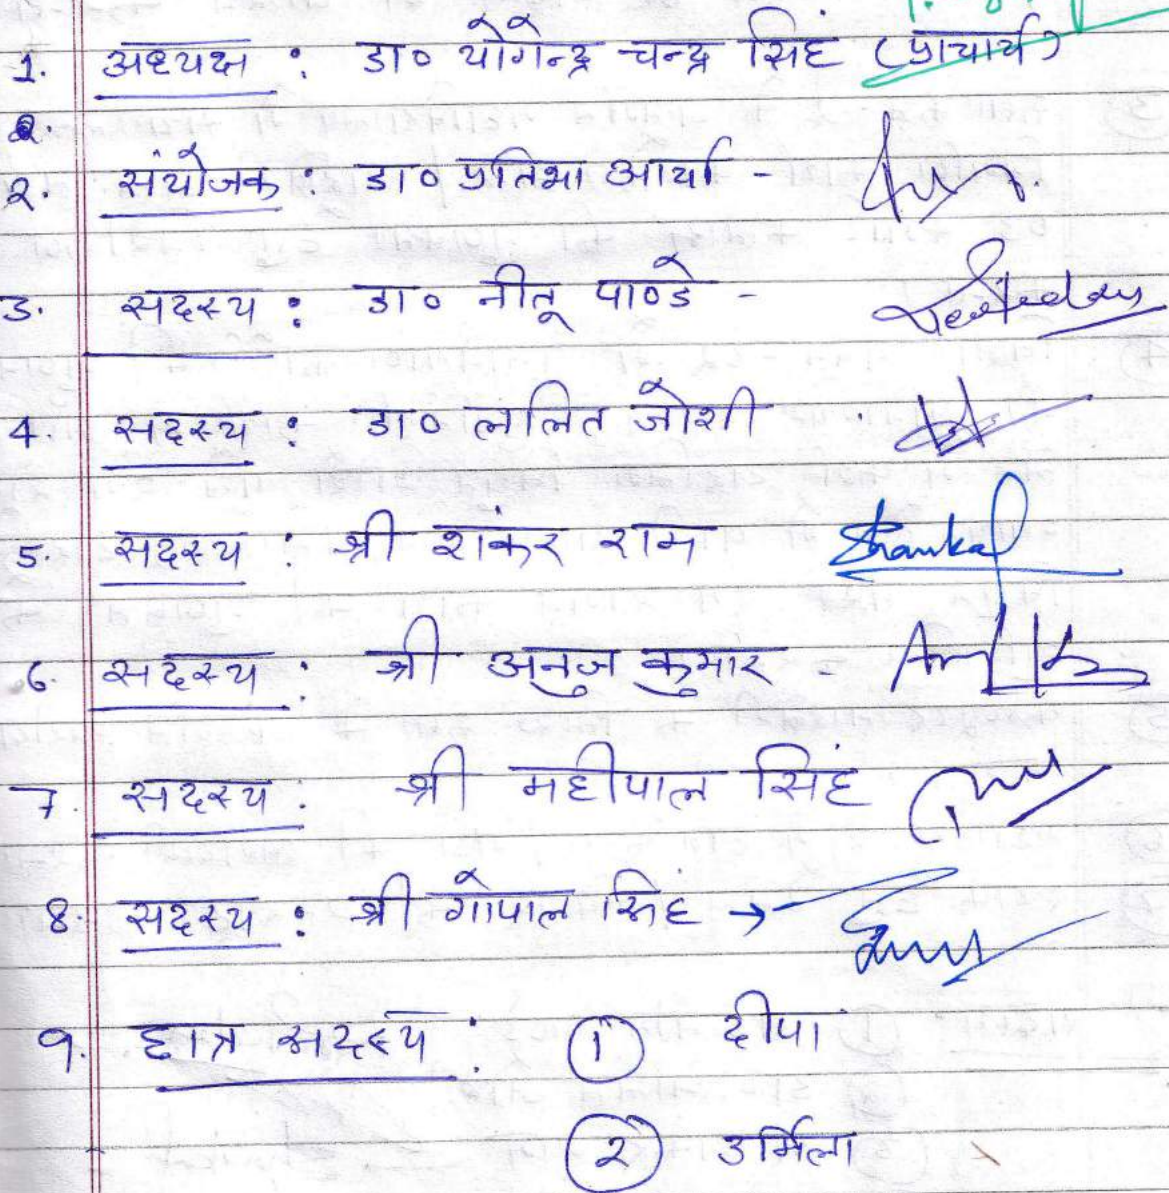 1. अध्यक्ष : डा० योगेन्द्र चन्द्र सिंह (प्राचार्य)
२. संयोजक : डा० प्रतिभा आर्या -
3. सदस्य : डा० नीतू पाण्डे -
4. सदस्य : डा० ललित जोशी
5. सदस्य : श्री शंकर राम Shankar
6. सदस्य : श्री अनुज कुमार -
7. सदस्य : श्री महीपाल सिंह
8. सदस्य : श्री गोपाल सिंह →
9. छात्र सदस्य : 1 दीपा
2 उर्मिला